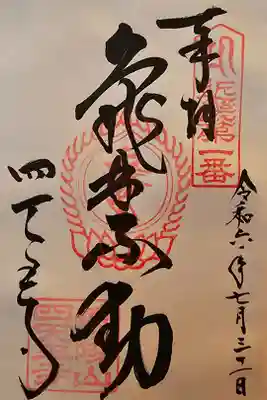 奉拝
第一番
令和六年七月三十一日
亀井不動
四天王寺